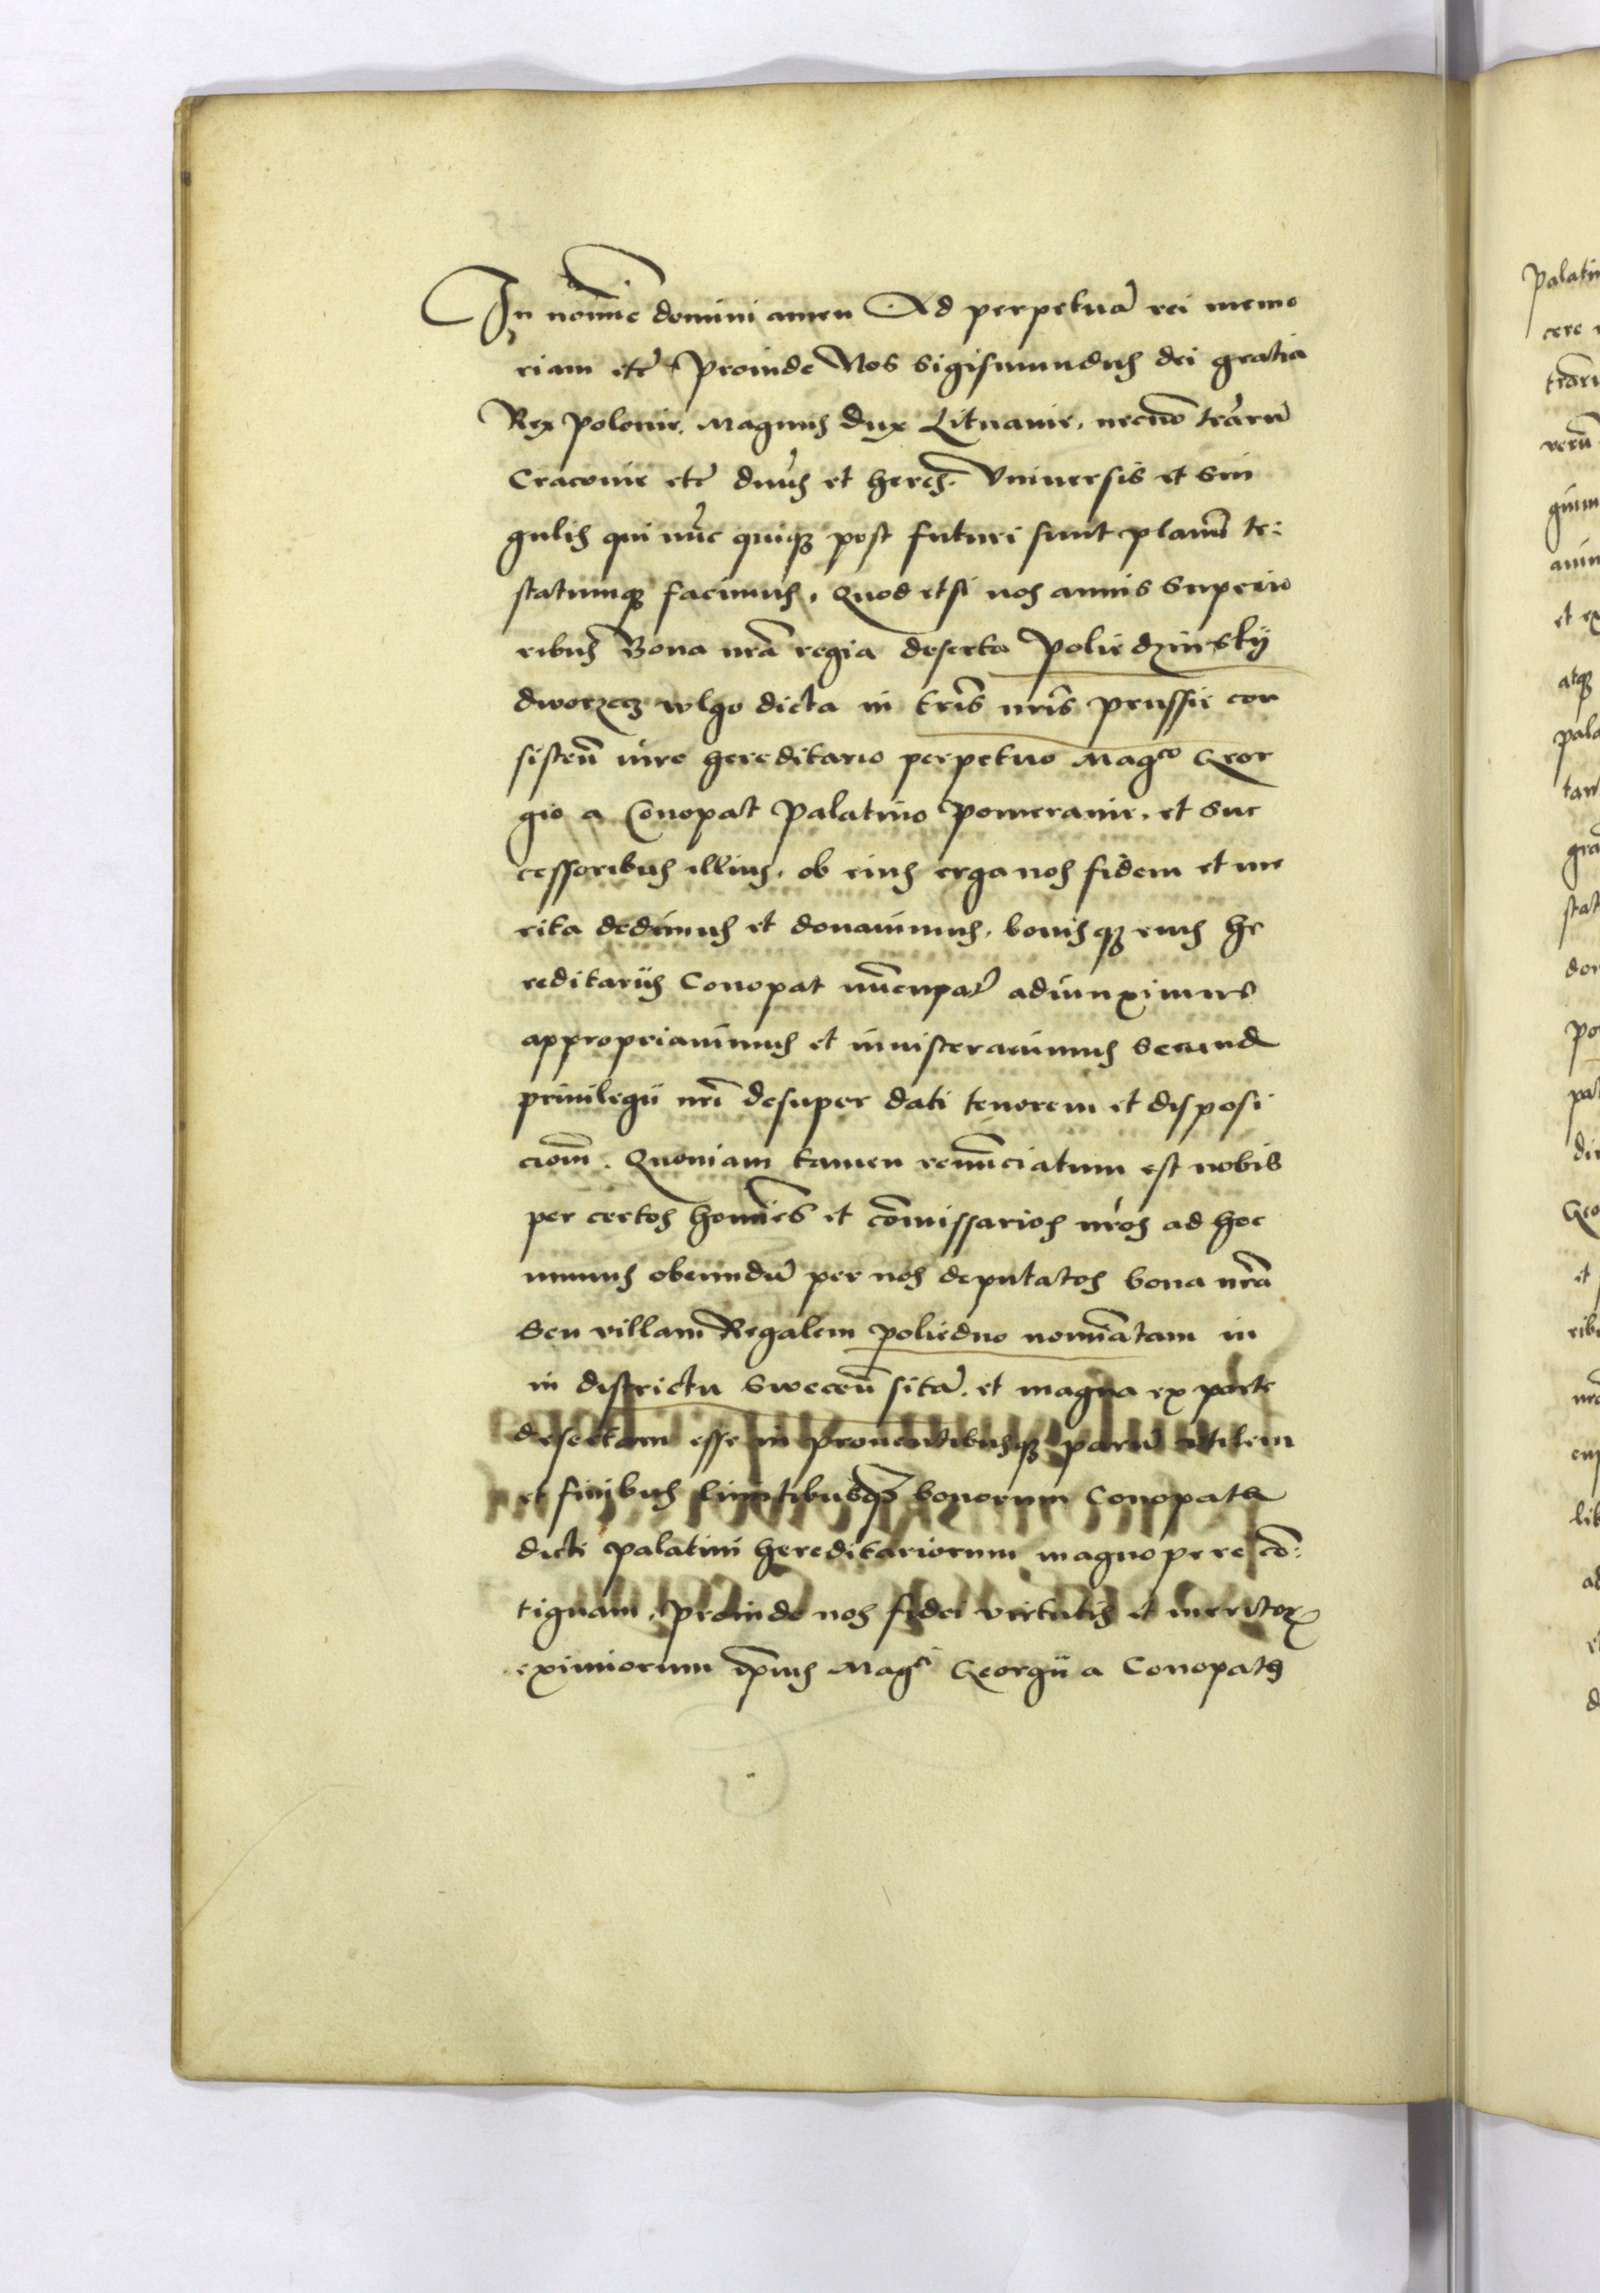 In nomie domini amen Ad perpetuā rei memo
riam etc̄ Proinde Nos Sigismundus dei gratia
Rex Polonie. Magnus dux Lituanie. necnō terarū
Cracovie etc̄ dn̄us et heres. Vniuersis et sin
gulis qui nūc quiq3 post futuri sunt planū te:
statumq3 facimus. Quod etsi nos annis superio
ribus Bona nr̄a regia deserta Poliedzinsky
dworzecz wlgo dicta in tr̄is nr̄is prussie con
sisteñ iure hereditario perpetuo Mag^co Geor
gio a Conopat Palatino Pomeranie. et suc
cessoribus illius. ob eius erga nos fidem et me
rita dedimus et donauimus. bonisq3 eius he
reditariis Conopat nūcupat̄ adiunximus
appropriauimus et inuiscerauimus secund
priuilegii nr̄i desuper dati tenorem et disposi
cionē. Quoniam tamen renūciatum est nobis
per certos homīes et cōmissarios nr̄os ad hoc
munus obeundū per nos deputatos bona nr̄a
seu villam Regalem poliedno nomīatam in
in districtu sweceñ sitā. et magna ex parte
desertam esse in prouentibusq3 parū utilem
et finibus limitibusq3 bonorum Conopath
dicti palatini hereditariorum magnopere cō:
tiguam. Proinde nos fidei virtutis et meritor̄
eximiorum ip̄ius Mag^ci Georgii a Conopath
Palatin
cere
et ex
atq3
pala
gra
stat
don
Geo
et